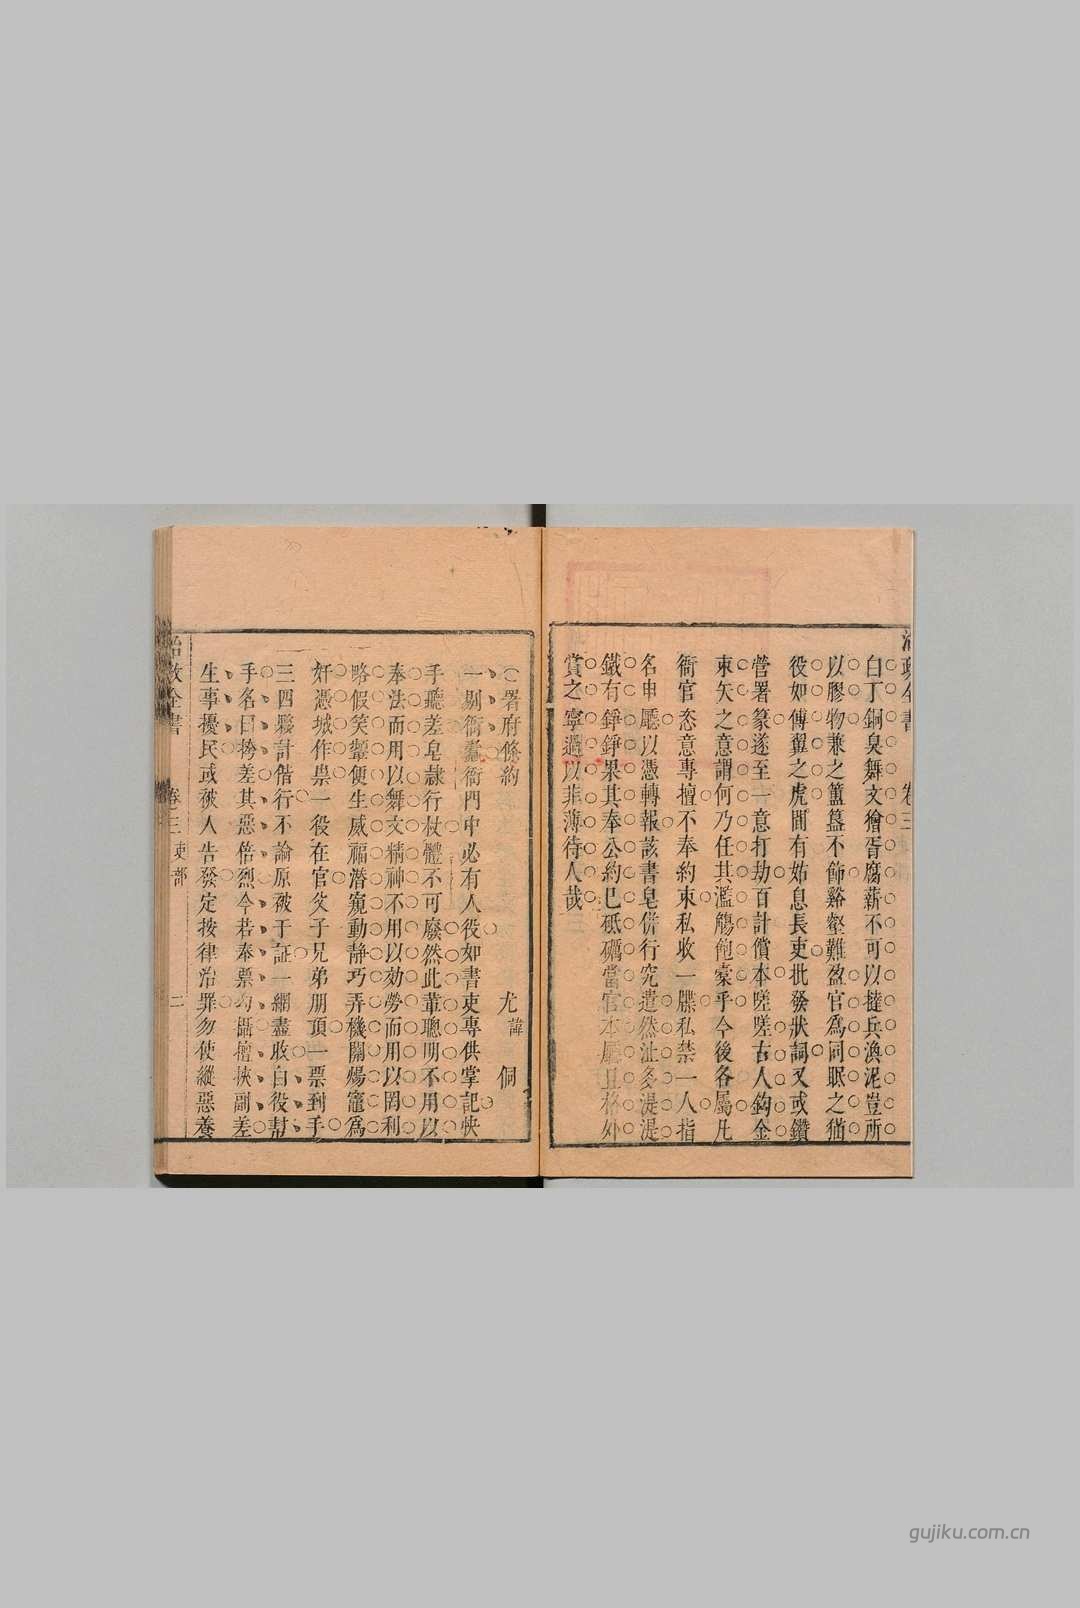 白丁銅臭舞文獪胥腐薪不可以撻兵渙泥豈所
以膠物兼之簠簋不飾谿壑難盈官為同眠之猫
役如傅翼之虎間有姑息長吏批發狀詞又或鑽
營署篆遂至一意打劫百計償本嗟嗟古人鈎金
束矢之意謂何乃任其濫觴飽橐乎今後各屬凡
衙官恣意專擅不奉約束私收一牒私禁一人指
名申廳以憑轉報該書皂併行究遣然沚多湜湜
鐵有錚錚果其奉公約己砥礪當官本廳且格外
賞之寧過以菲薄待人哉
治政全書 卷三
○署府條約 尤諱侗
一剔衙蠹衙門中必有人役如書吏專供掌記快
手聽差皂隷行杖體不可廢然此輩聰明不用以
奉法而用以舞文精神不用以効勞而用以罔利
略假笑顰便生威福潛窺動靜巧弄機關煬竈為
奸憑城作祟一役在官父子兄弟朋頂一票到手
三四夥計偕行不論原被干証一網盡收白役幇
手名曰挎差其惡倍烈今若奉票勾攝擅挾副差
生事擾民或被人告發定按律治罪勿使縱惡養
治政全書 卷三 吏部 二
gujiku.com.cn